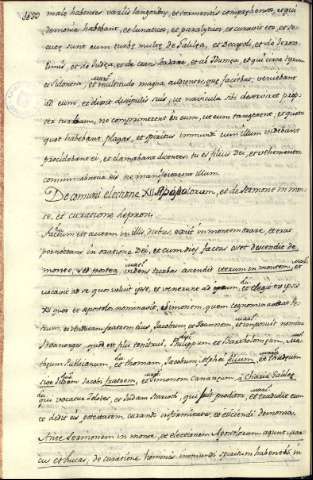 male habentes variis languoribus, et tormentis comprehensos, et qui
demonia habebant, et lunaticos, et paralyticos, et curavit eos, et se
cutæ sunt eum turbæ multæ de Galilea, et Decapoli, et de Jeroso
limis, et de Judæa, et de trans Jordane, et ab Idumea, et qui circa Tyrum
et Sidonem, et multitudo magna, audientes quæ faciebat, venerunt
ad eum, et dixit discipulis suis, ut navicula sibi deserviret prop
ter turbam, ne comprimerent eum, ut eum tangerent, et quot
quot habebant plagas, et spiritus immundi cum illum videbant
procidebant ei, et clamabant dicentes, tu es filius Dei, et vehementer
comminabatur eis ne manifestarent illum.
De electione XII Apostolorum, et de sermone in mon
te, et curatione leprosi
Factum est autem in illis diebus, exiit in montem orare, et erat
pernoctans in oratione Dei, et cum dies factus esset
monte, videns turbas ascendit in montem, et
vocavit ad se quos voluit ipse, et venerunt ad eum, et elegit ex ipsis
XII quos et apostolos nominavit, Simonem, quem cognominavit Pe
trum, et Andream fratrem eius, Jacobum, et Joannem, et imposuit nomina
Boanerges quod est filii tonitrui, Philippum, et Bartholomæum, Ma
thæum Publicanum, et Thomam, Jacobum Alphei filium, et Thaddæum
Jacobi fratrem, et Simonem Cananæum,
et Judam Iscarioth, qui fuit proditor, et
dedit eis potestatem curandi infirmitates, et eiiciendi demonia.
Ante sermonem in monte, et electionem Apostolorum agunt Mar
cus et Lucas, de curatione hominis immundi spiritum habentis in